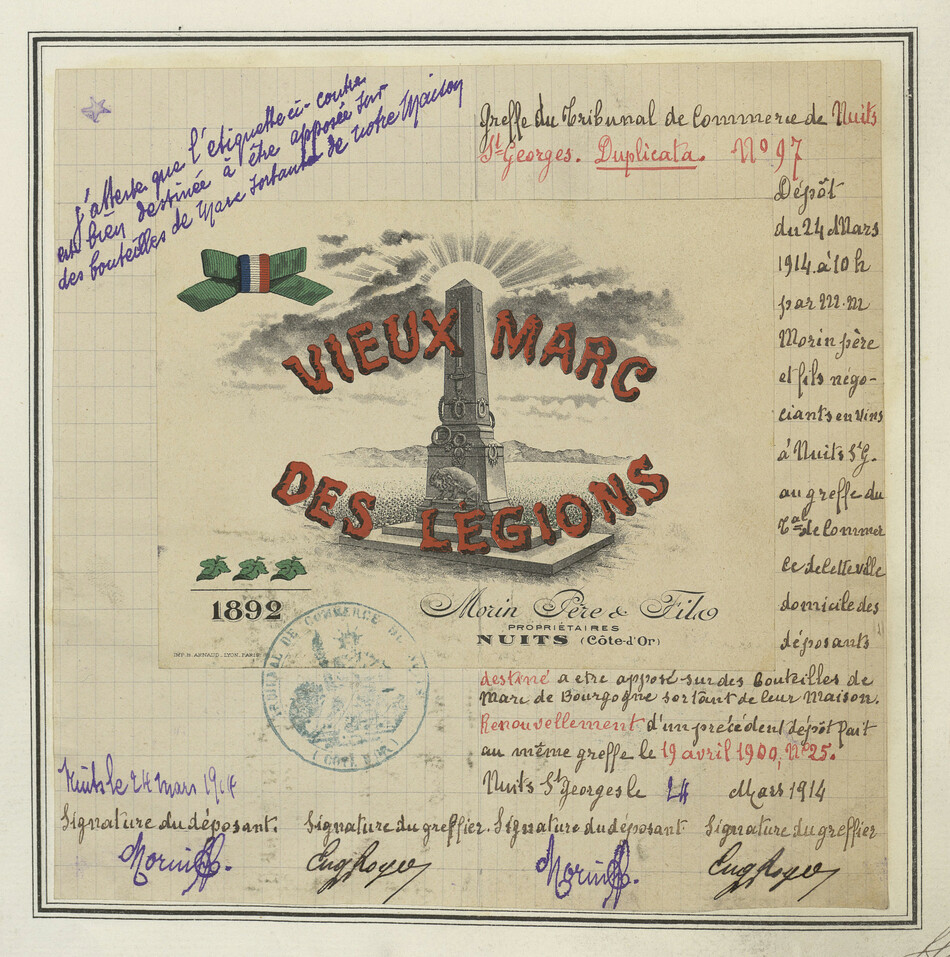 j'atteste que l'étiquette ci-contre
est bien destinée à être apposée sur
des bouteilles de Marc sortant de notre Maison
Greffe du Tribunal de Commerce de Nuits
St Georges. Duplicata. No 97
Dépôt
du 24 Mars
1914 à 10 h
par M.M
Morin père
et fils négo-
ciants en vins
à Nuits St G.
au greffe du
Tal de Commer
ce de cette ville
domicile des
déposants
VIEUX MARC
DES LÉGIONS
1892
Morin Père & Fils
PROPRIÉTAIRES
NUITS (Côte-d'Or)
IMP. H. ARNAUD. LYON. PARIS
TRIBUNAL DE COMMERCE DE
(COTE D'OR)
destiné a etre apposé sur des Bouteilles de
Marc de Bourgogne sortant de leur Maison.
Renouvellement d'un précédent dépôt fait
au même greffe le 19 avril 1900, No 25.
Nuits le 24 mars 1914
Nuits St Georges le 24 Mars 1914
Signature du déposant. Signature du greffier. Signature du déposant Signature du greffier
Morin Eug Royer Morin Eug Royer